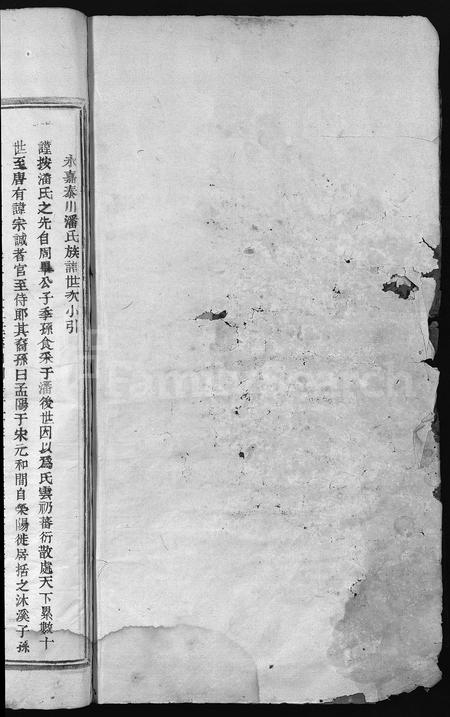 永嘉泰川潘氏族譜世次小引
謹按潘氏之先自周畢公子季孫食采于潘後世因以為氏雲礽蕃衍散處天下累數十
世至唐有諱宗誠者官至侍郎其裔孫曰孟陽于宋元和間自滎陽徙居括之沐溪子孫
FamilySearch